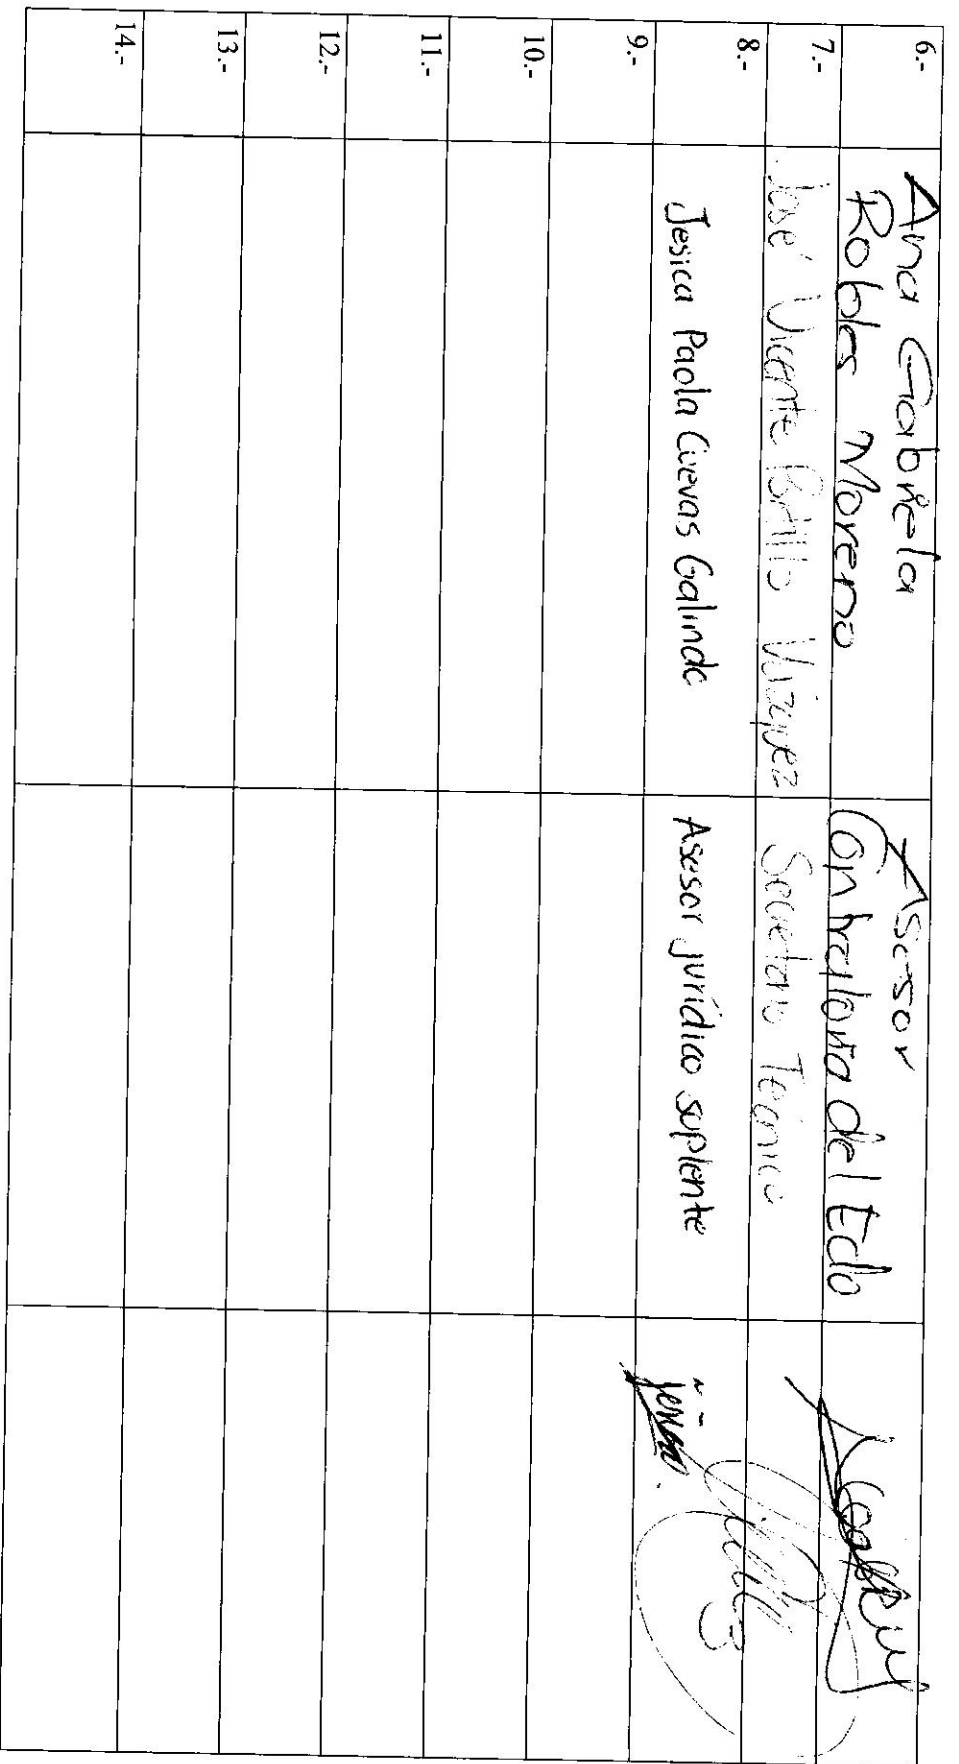 6.- Ana Gabriela Asesor
Robles Moreno Contraloria del Edo
7.- José Vicente Vázquez Secretario Técnico
8.- Jesica Paola Cuevas Galindo Asesor jurídico suplente
9.-
10.-
11.-
12.-
13.-
14.-